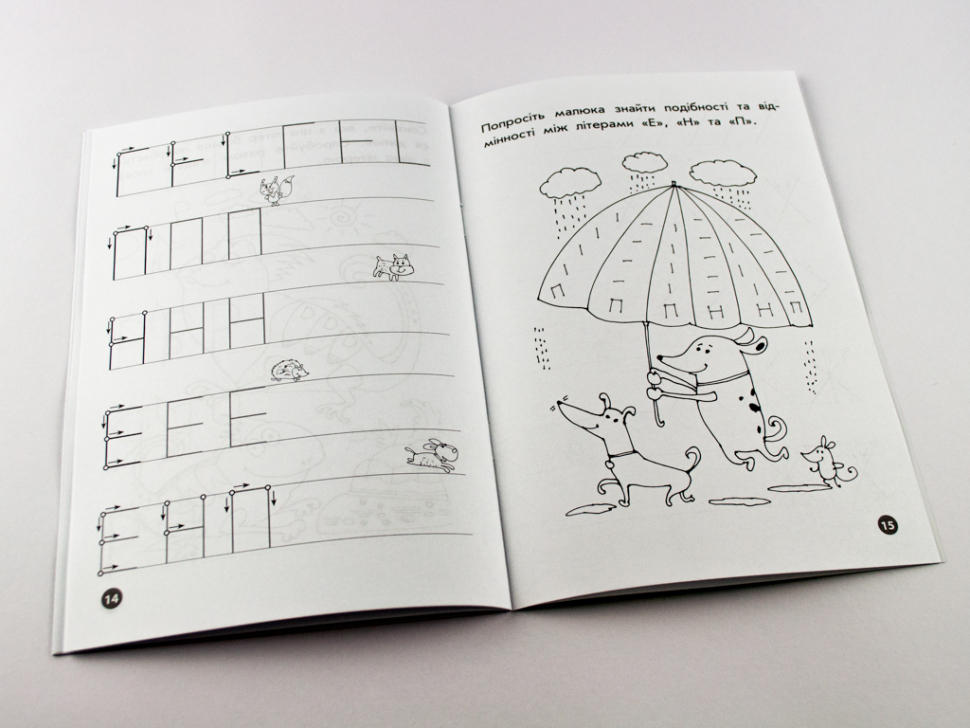 П П П
Н Н Н
Е Е Е
Е Н П
14
Попросіть малюка знайти подібності та від-
мінності між літерами «Е», «Н» та «П».
П П Н Н Н П
15